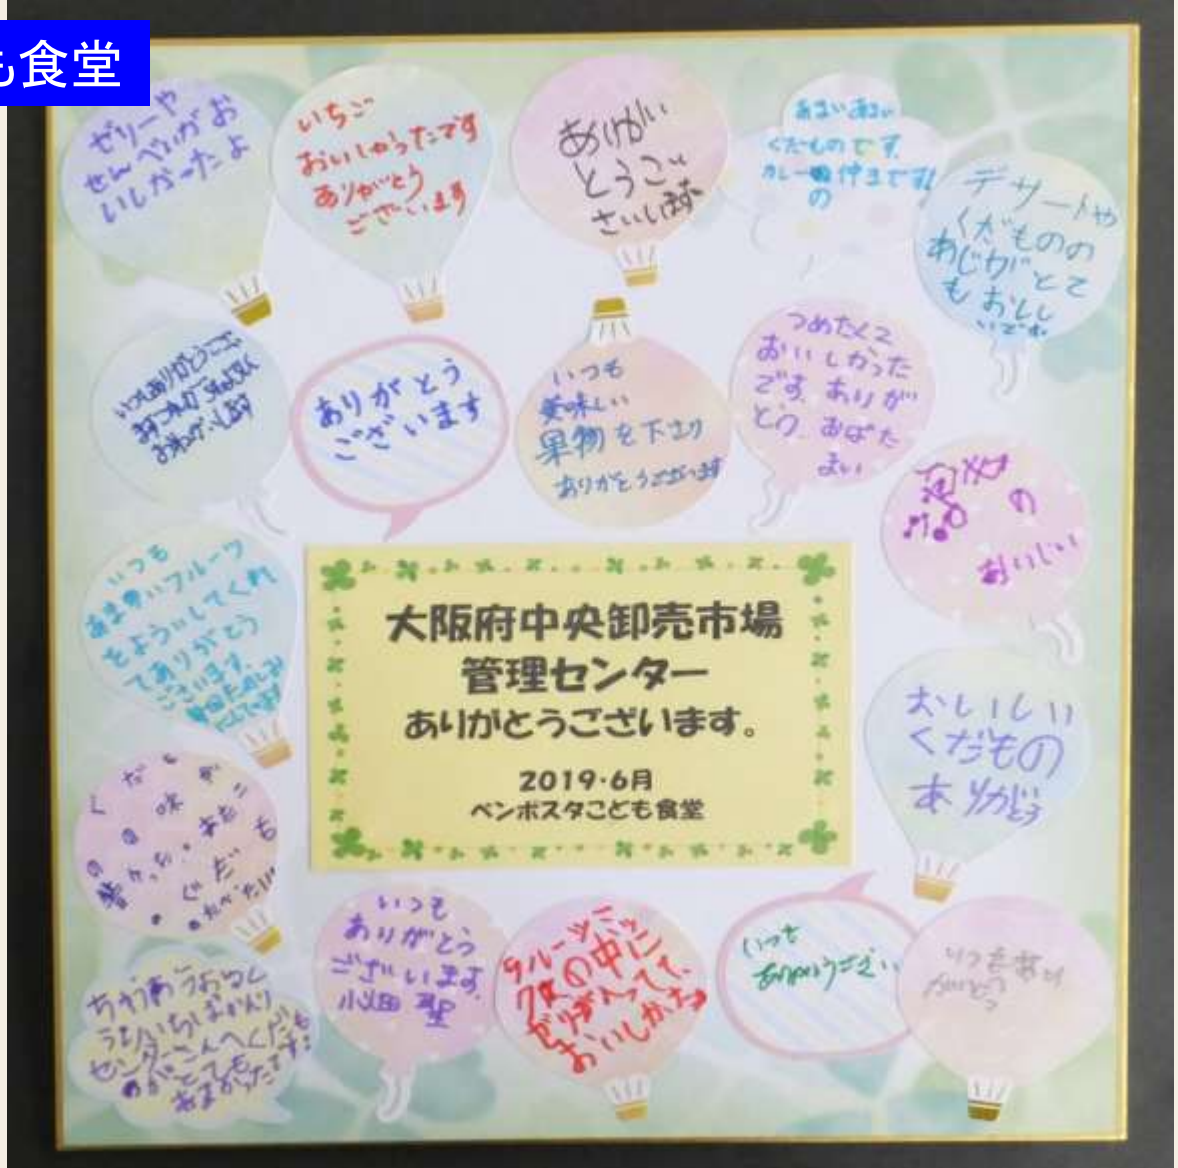 も食堂
ゼリーや
せんべいがお
いしかったよ
いちご
おいしかったです
ありがとう
ございます
ありがい
とうござ
あまいあまい
くだものです。
の
デザートや
くだものの
あじがとて
も おいし
いです
いつもありがとうござ
ありがとう
ございます
いつも
美味しい
果物を下さり
ありがとうございます
つめたくて
おいしかった
です。ありが
とう。おばた
まい
の
おいしい
いつも
フルーツ
をよういしてくれ
てありがとう
ございます。
大阪府中央卸売市場
管理センター
ありがとうございます。
2019・6月
ベンポスタこども食堂
おいしいい
くだもの
ありがとう
くだも
の味が
いつも
ありがとう
ございます。
小畑 聖
フルーツミッ
クスの中に
ゼリーが入ってて、
おいしかった
いつも
ありがとうござい
いつも
ちゅうおうおろし
うりいちばかんり
センターさんへくだも
のがとても
あまかったです